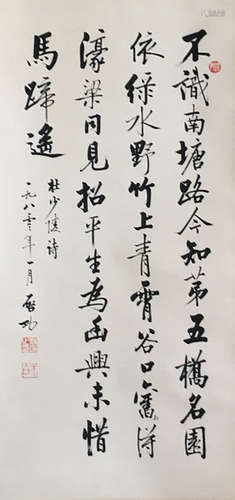 不識南塘路今知苐五橋名園
依綠水野竹上青霄谷口舊得
濠梁同見招平生為幽興未惜
馬蹄遙
杜少陵詩
一九八年一月 啟功